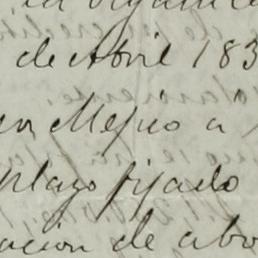 de Abril 183
en Mejico a
plazo fijado
acion de abo